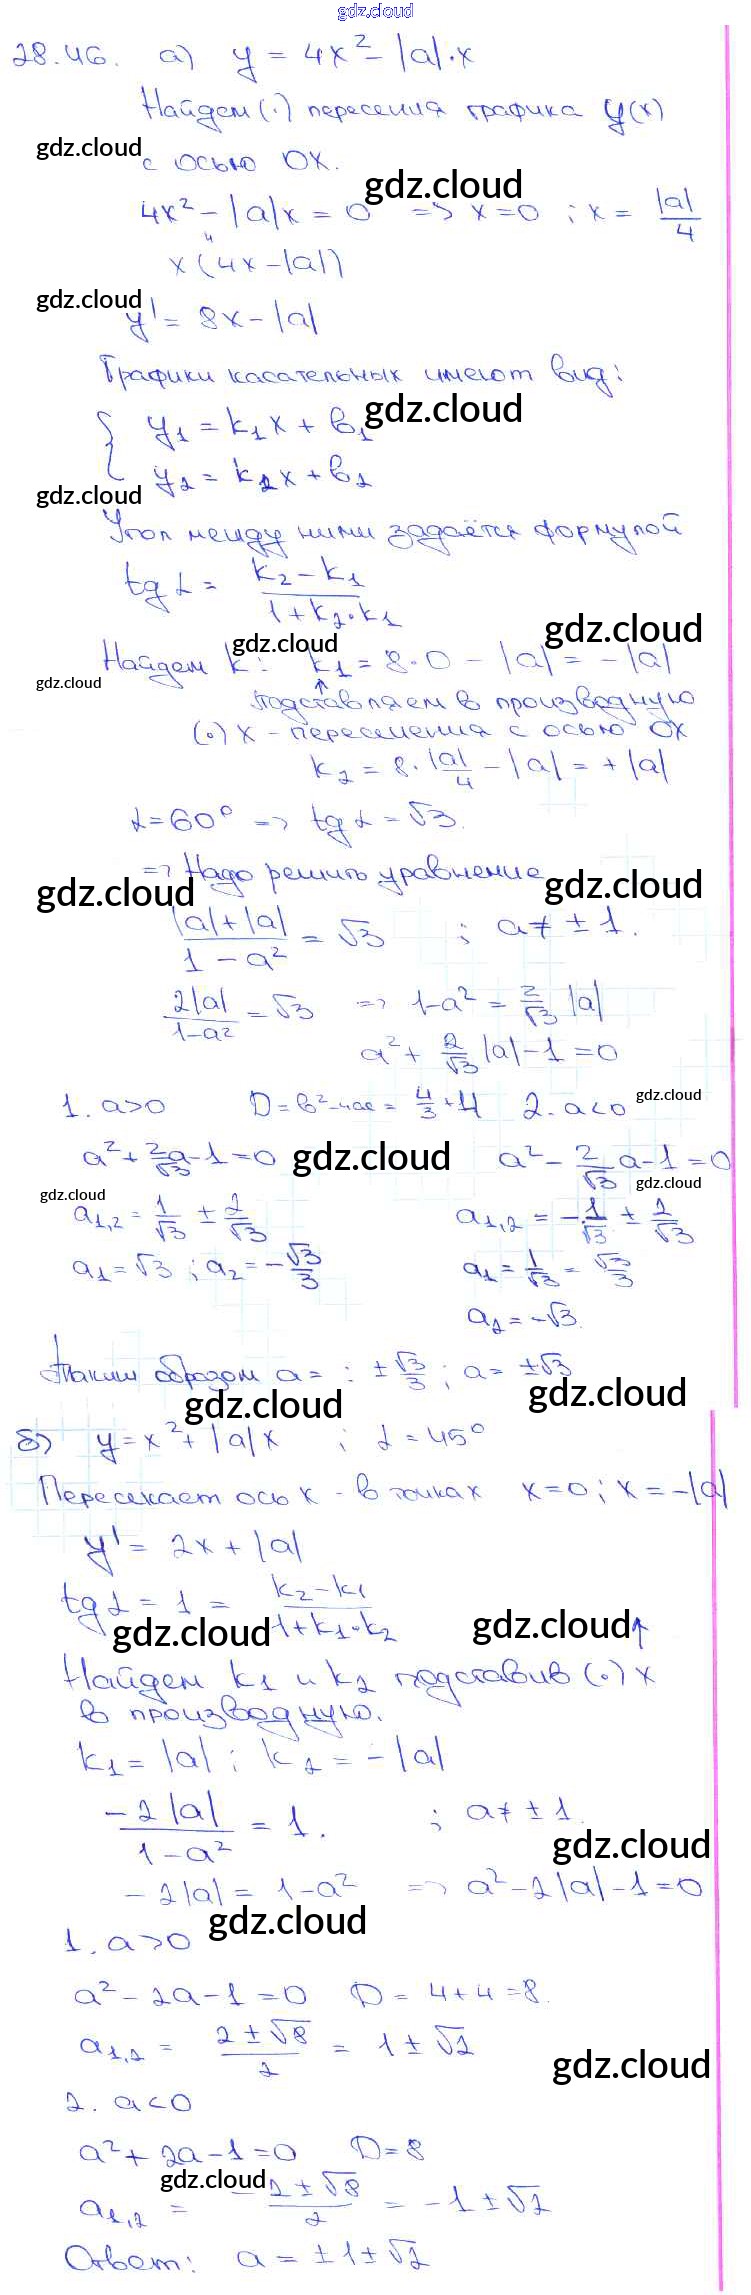 gdz.cloud
28.46. а) y = 4x² - |a|·x
Найдем (·) пересения графика y(x)
gdz.cloud
с осью OX.
gdz.cloud
4x² - |a|x = 0 => x=0 ; x = |a|/4
x(4x-|a|)
gdz.cloud
y' = 8x - |a|
Графики касательных имеют вид:
gdz.cloud
{ y₁ = k₁x + b₁
y₂ = k₂x + b₂
gdz.cloud
Угол между ними задаётся формулой
tg α = (k₂ - k₁)/(1 + k₂·k₁)
gdz.cloud
gdz.cloud
Найдем k: k₁ = 8·0 - |a| = -|a|
gdz.cloud
↑ подставляем в производную
(·) x - пересечения с осью OX
k₂ = 8·|a|/4 - |a| = +|a|
α = 60° => tg α = √3.
=> Надо решить уравнение
gdz.cloud
gdz.cloud
(|a|+|a|)/(1-a²) = √3 ; a ≠ ±1.
2|a|/(1-a²) = √3 => 1-a² = 2/√3 |a|
a² + 2/√3 |a| - 1 = 0
1. a>0 D = b²-4ac = 4/3 + 4 2. a<0
gdz.cloud
a² + 2a/√3 - 1 = 0 a² - 2/√3 a - 1 = 0
gdz.cloud
gdz.cloud
gdz.cloud
a₁,₂ = 1/√3 ± 2/√3 a₁,₂ = -1/√3 ± 2/√3
a₁ = √3 ; a₂ = -√3/3 a₁ = 1/√3 = √3/3
a₂ = -√3.
Таким образом a = : ± √3/3 ; a = ±√3
gdz.cloud
gdz.cloud
б) y = x² + |a|x ; α = 45°
Пересекает ось x - в точках x=0 ; x = -|a|
y' = 2x + |a|
tg α = 1 = (k₂ - k₁)/(1 + k₁·k₂)
gdz.cloud
gdz.cloud ↑
Найдем k₁ и k₂ подставив (·) x
в производную.
k₁ = |a| ; k₂ = -|a|
-2|a|/(1-a²) = 1. ; a ≠ ±1.
gdz.cloud
-2|a| = 1-a² => a² - 2|a| - 1 = 0
gdz.cloud
1. a>0
a² - 2a - 1 = 0 D = 4+4 = 8.
a₁,₂ = (2 ± √8)/2 = 1 ± √2
gdz.cloud
2. a<0
a² + 2a - 1 = 0 D = 8
gdz.cloud
a₁,₂ = (-2 ± √8)/2 = -1 ± √2
Ответ: a = ±1 ± √2